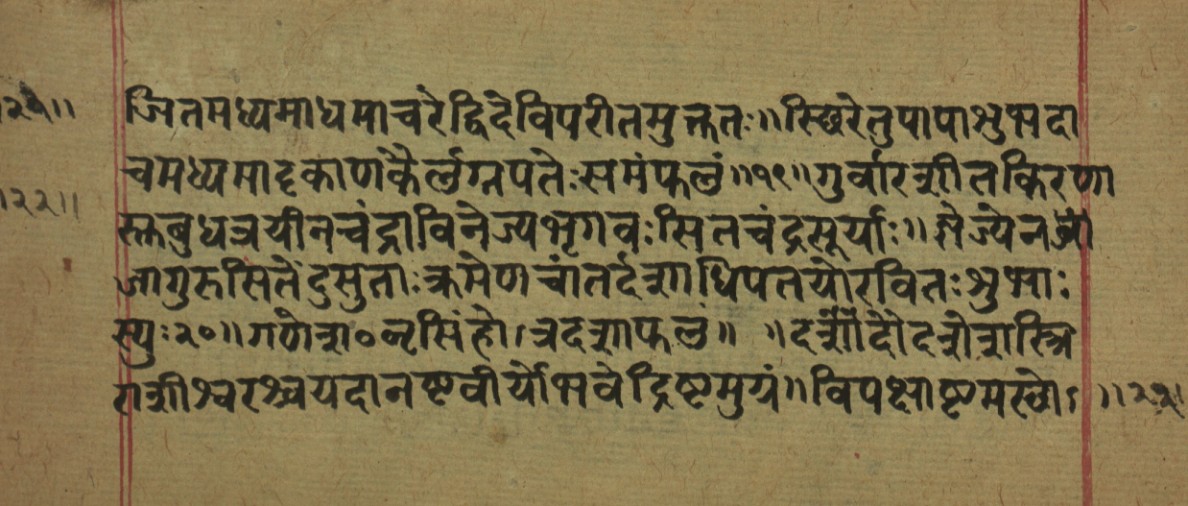 ॥२१॥ जितमध्यमाधमाचरेद्विदेविपरीतमुक्ततः॥स्छिरेतुपापाशुभदा
चमध्यमादृकाणकैर्लग्नपतेःसमंफलं॥१९॥गुर्वारशीतकिरणा
॥२२॥
स्क्तबुधत्रयीनचंद्राविनेज्यभृगवःसितचंद्रसूर्याः॥ज्ञेज्येन
आगुरुसितेंदुसुताःक्रमेणचांतर्दशाधिपतयोरवितःशुभाः
स्युः२०॥गणेशा०नृसिंहो।त्रदशाफलं॥ ॥दशादौदशेशस्त्रि
राशीश्वरश्चयदानष्टवीर्योभवेद्रिष्टमुग्रं॥विपक्षाष्टमस्छो। ॥२२॥